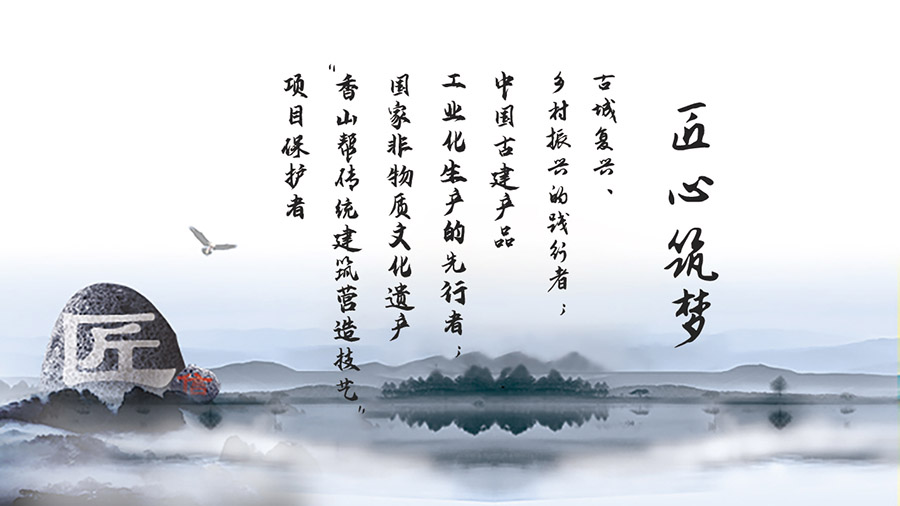 匠心筑梦
古城复兴、
乡村振兴的践行者；
中国古建产品
工业化生产的先行者；
国家非物质文化遗产
"香山帮砖统建筑营造技艺"
项目保护者
匠